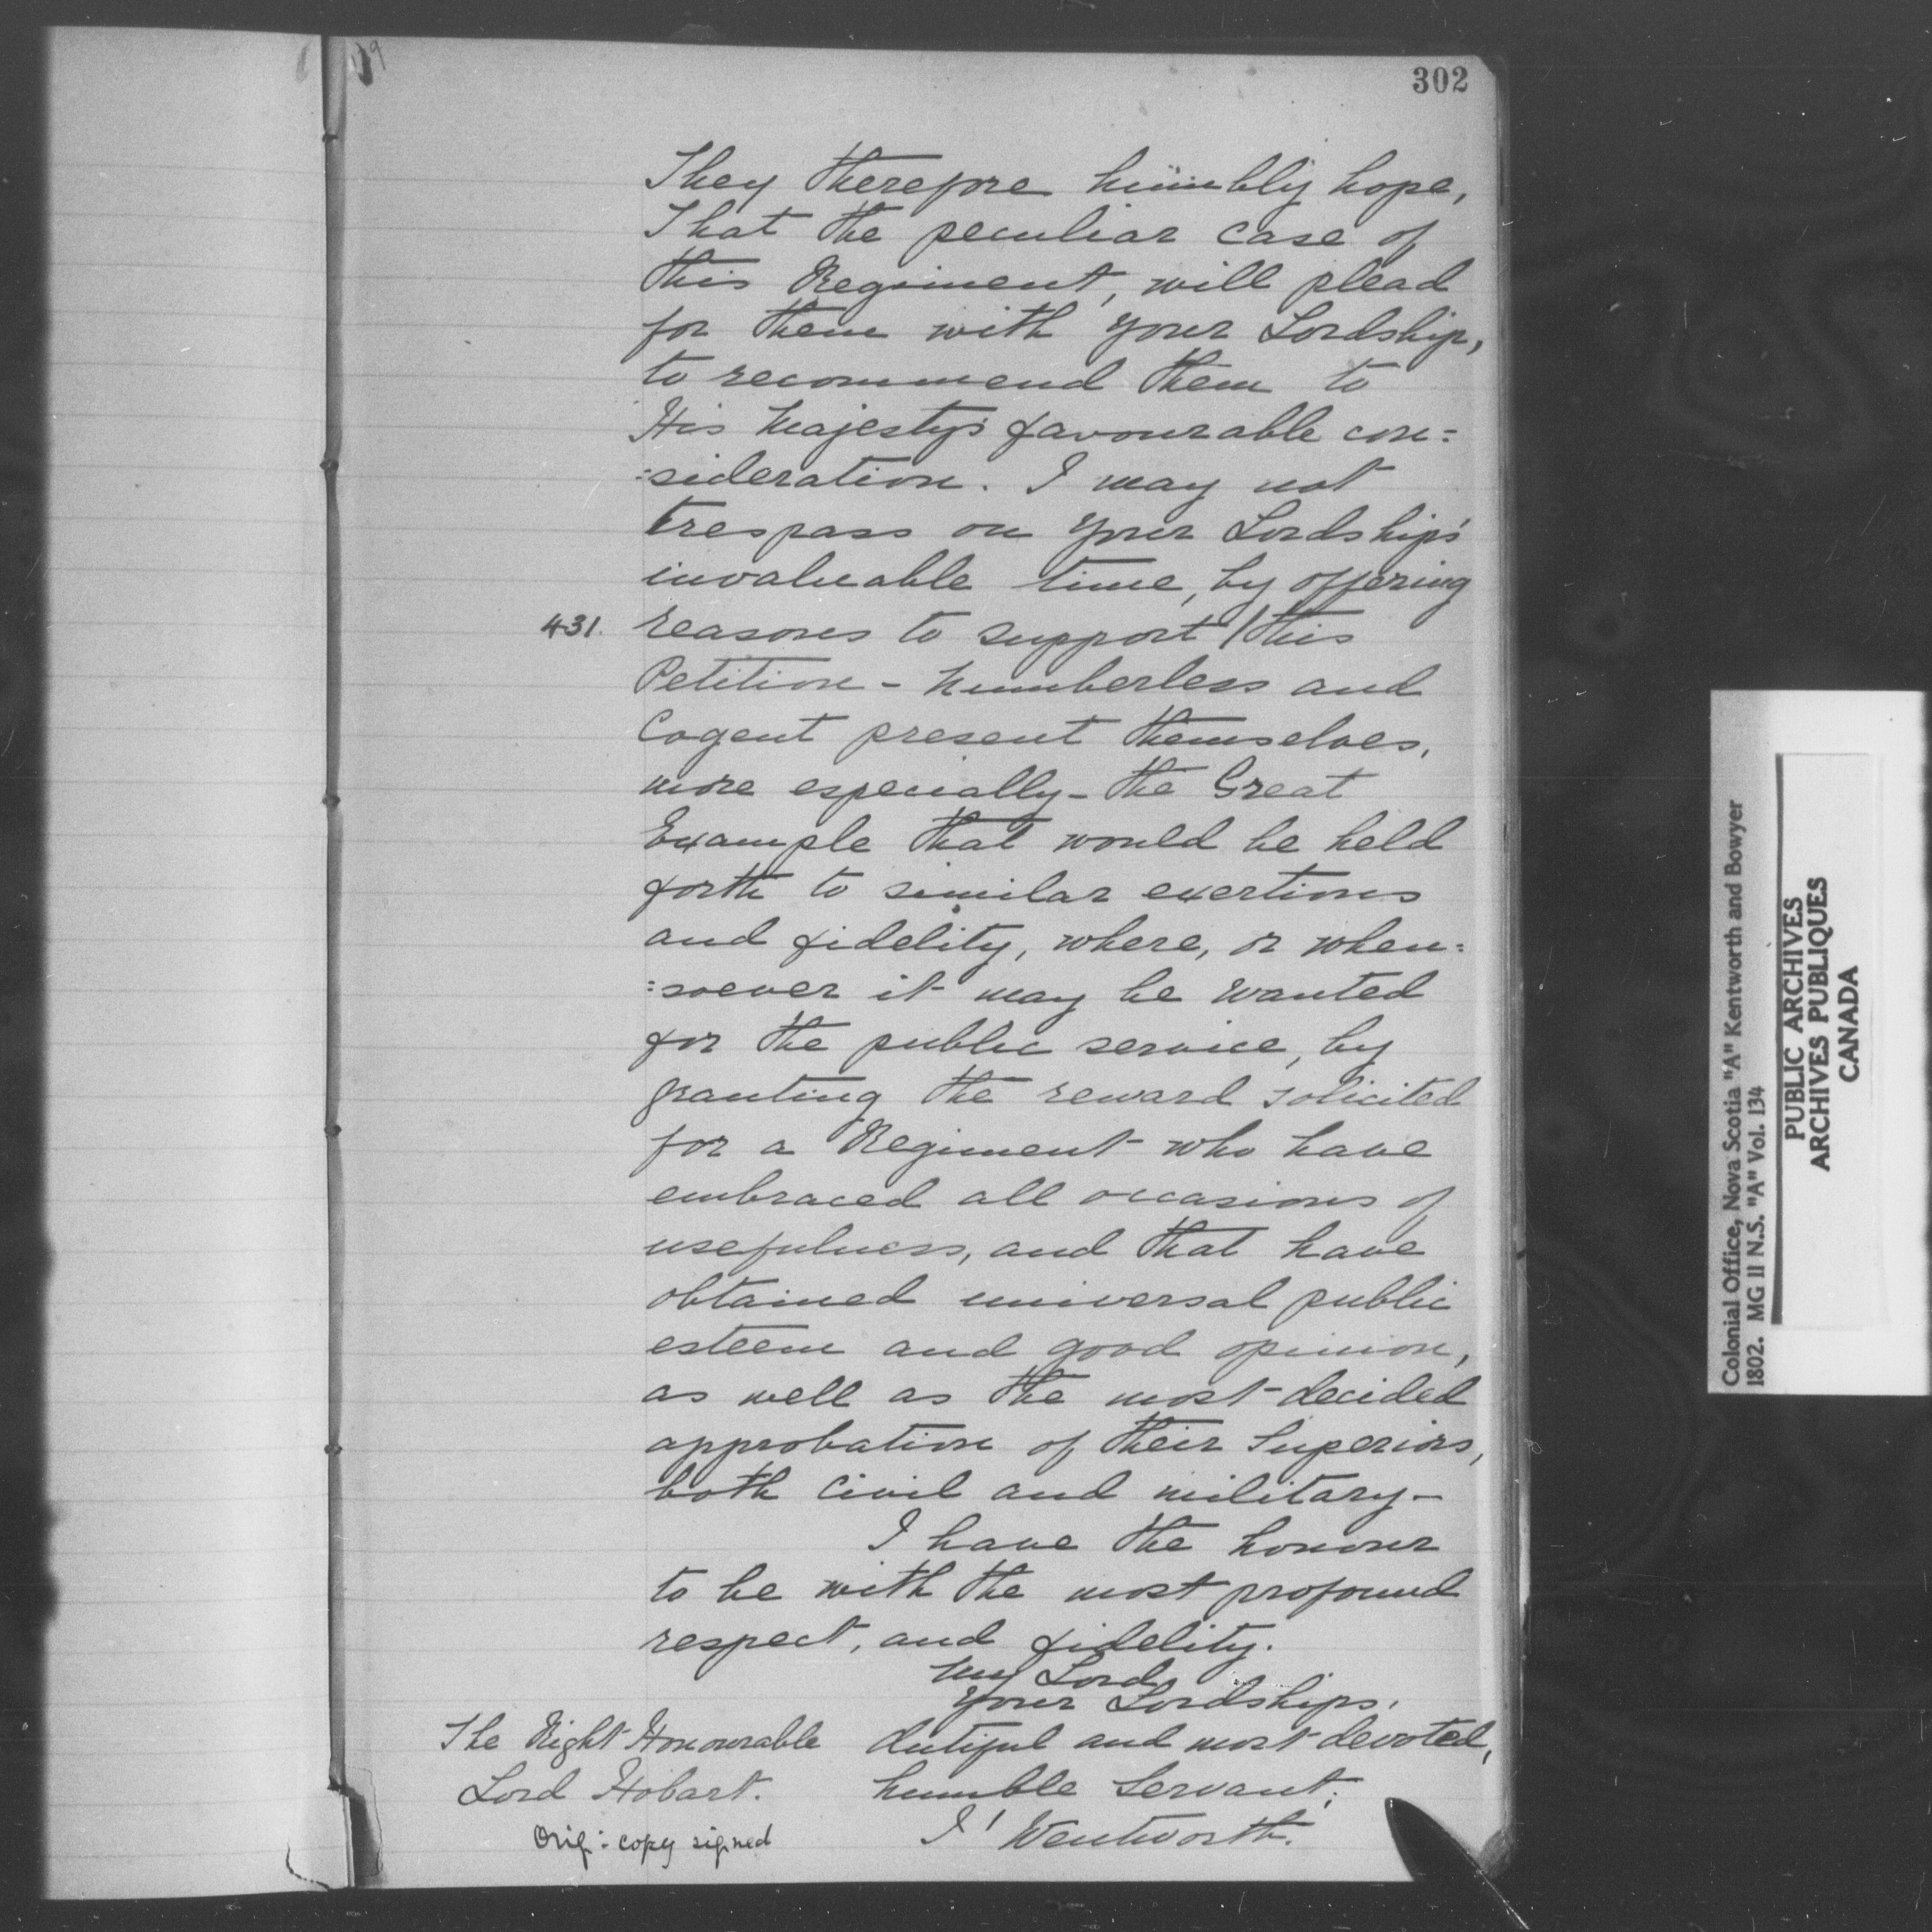 302
They therefore humbly hope,
That the peculiar case of
this Regiment, will plead
for them with your Lordship,
to recommend them to
His Majesty's favourable con=
=sideration. I may not
trespass on your Lordship's
invaluable time, by offering
431. reasons to support / this
Petition - Numberless and
Cogent present themselves,
more especially - the Great
Example that would be held
forth to similar exertions
and fidelity, where, or when=
=soever it may be wanted
for the public service, by
granting the reward solicited
for a Regiment who have
embraced all occasions of
usefulness, and that have
obtained universal public
esteem and good opinion,
as well as the most decided
approbation of their Superiors,
both Civil and military -
I have the honour
to be with the most profound
respect, and fidelity.
My Lord
Your Lordships,
dutiful and most devoted,
humble Servant,
J Wentworth.
The Right Honourable
Lord Hobart.
Orig: copy signed
Colonial Office, Nova Scotia "A" Kentworth and Bowyer
1802. MG 11 N.S. "A" Vol. 134
PUBLIC ARCHIVES
ARCHIVES PUBLIQUES
CANADA